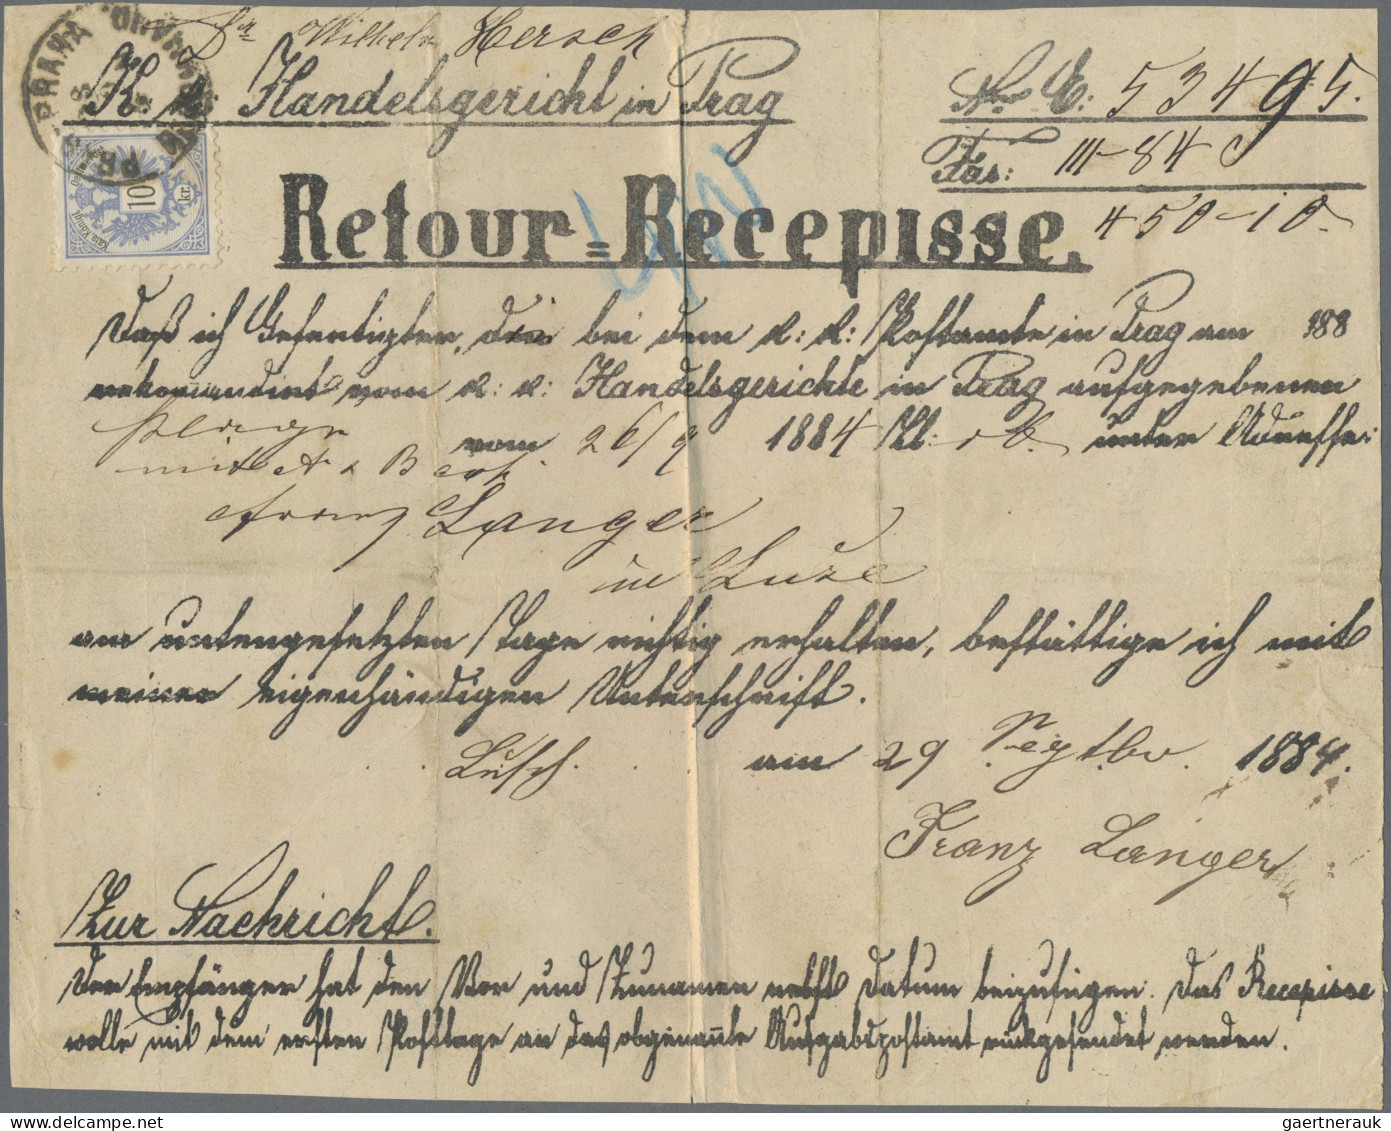 Dr Wilhelm Hersch
K. k. Handelsgericht in Prag
Nro E: 53495.
Fas: III-84
450-10
PRAHA
10 kr.
Retour=Recepisse.
Daß ich Gefertigter, die bei dem k: k: Postamte in Prag am 188
rekomandirt vom k: k: Handelsgerichte in Prag aufgegebenen
Klage vom 26/9 1884 Zl: unter Adresse:
mit A & B
Franz Langer
in Luze
am untengesetzten Tage richtig erhalten, bestättige ich mit
meiner eigenhändigen Unterschrift.
Lusch. am 29 Septbr. 1884.
Franz Langer
Zur Nachricht.
Der Empfänger hat den Vor und Zunamen nebst Datum beizufügen. Das Recepisse
wolle mit dem ersten Posttage an das obgenannte Aufgabspostamt rückgesendet werden.
gaertnerauk